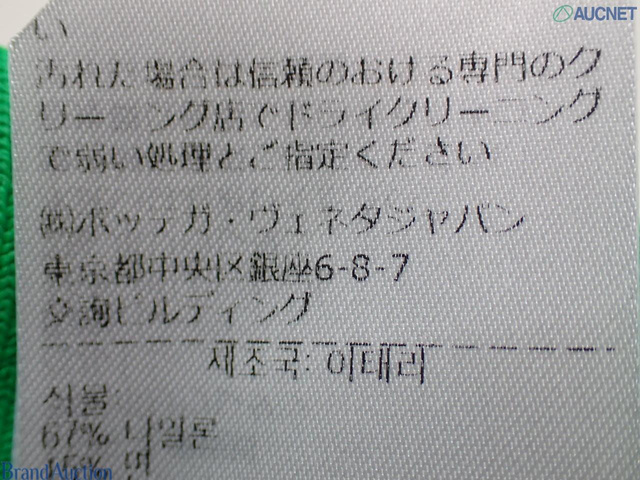 AUCNET
い
汚れた場合は信頼のおける専門のク
リーニング店でドライクリーニング
で弱い処理とご指定ください
㈱ボッテガ・ヴェネタジャパン
東京都中央区銀座6-8-7
交詢ビルディング
제조국: 이태리
식물:
67% 나일론
면
Brand Auction